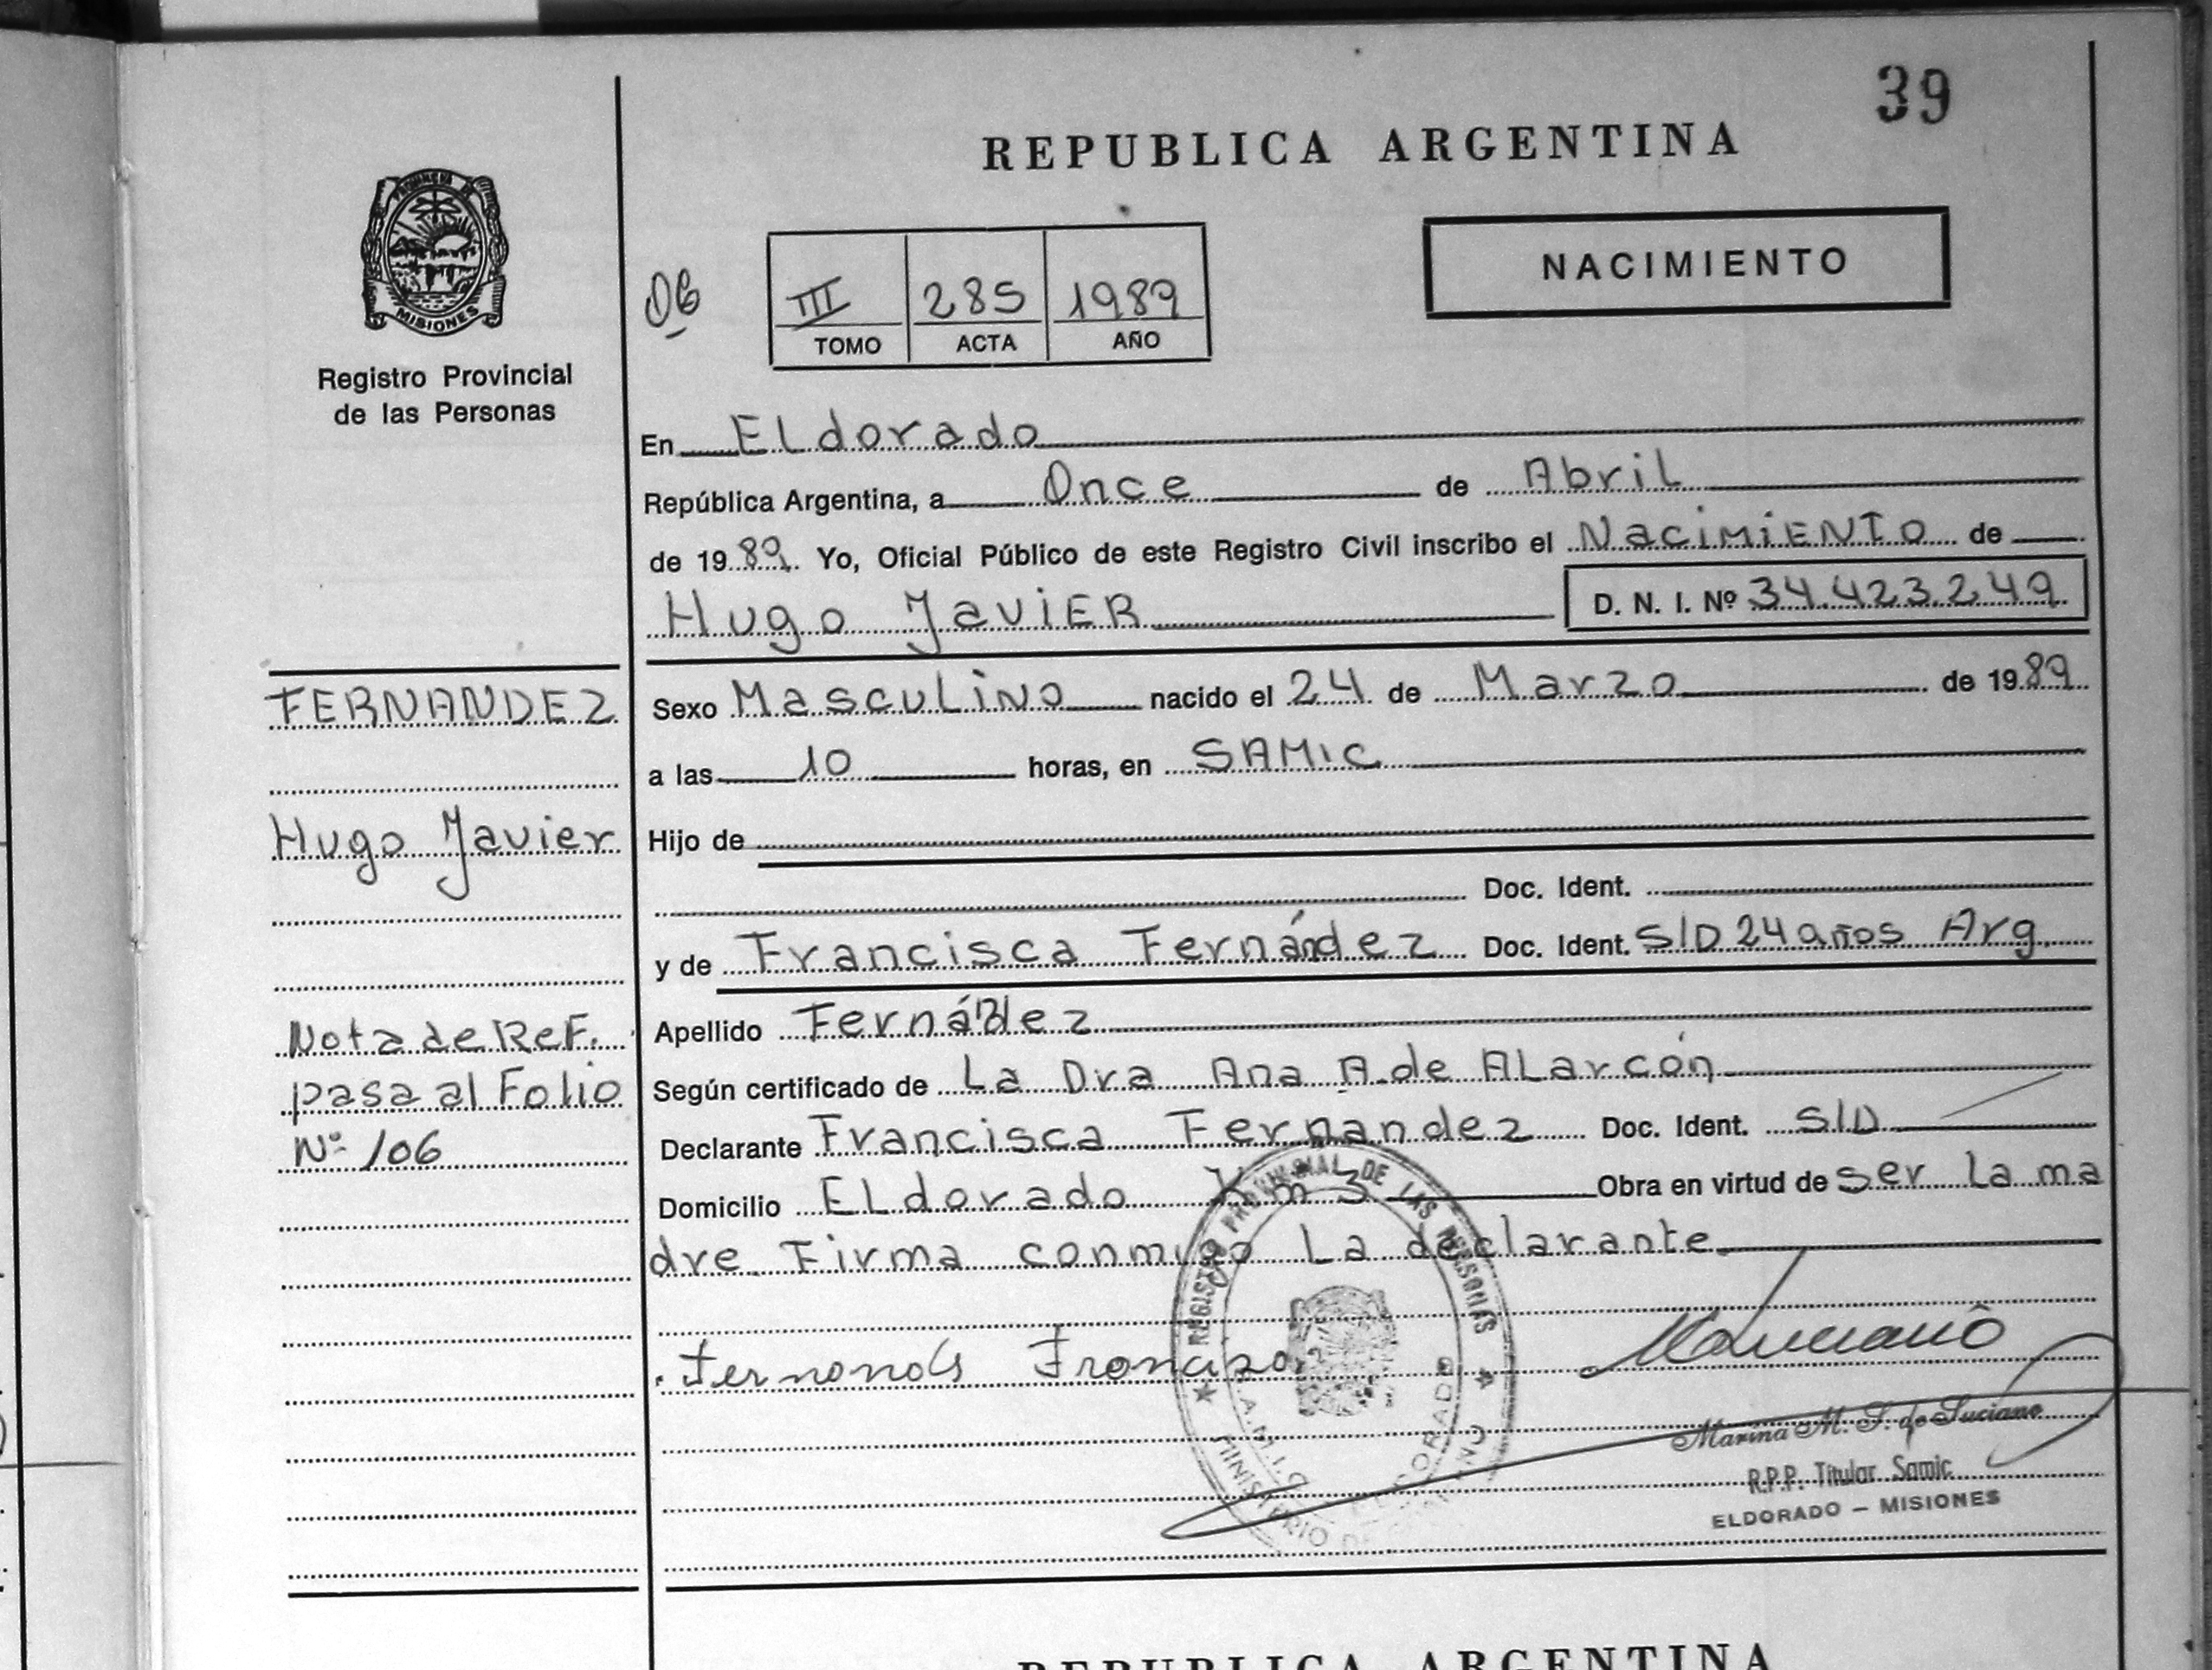 39
REPUBLICA ARGENTINA
PROVINCIA DE
MISIONES
Registro Provincial
de las Personas
06
III 285 1989
TOMO ACTA AÑO
NACIMIENTO
En Eldorado
República Argentina, a Once de Abril
de 1989 Yo, Oficial Público de este Registro Civil inscribo el NaciMiENTO de
Hugo JaviER D. N. I. Nº 34.423.249
FERNANDEZ
Hugo Javier
Nota de Ref.
pasa al Folio
Nº 106
Sexo Masculino nacido el 24 de Marzo de 1989
a las 10 horas, en SAMIC
Hijo de
Doc. Ident.
y de Francisca Fernández Doc. Ident. S/D 24 años Arg.
Apellido Fernández
Según certificado de La Dra Ana A. de Alarcón
Declarante Francisca Fernandez Doc. Ident. S/D
Domicilio Eldorado Km 3 Obra en virtud de ser la ma
dre. Firma conmigo La declarante
REGISTRO PROVINCIAL DE LAS PERSONAS
S.A.M.I.C. ELDORADO
MINISTERIO DE
Marina M. S. de Luciano
R.P.P. Titular Samic
ELDORADO – MISIONES
REPUBLICA ARGENTINA